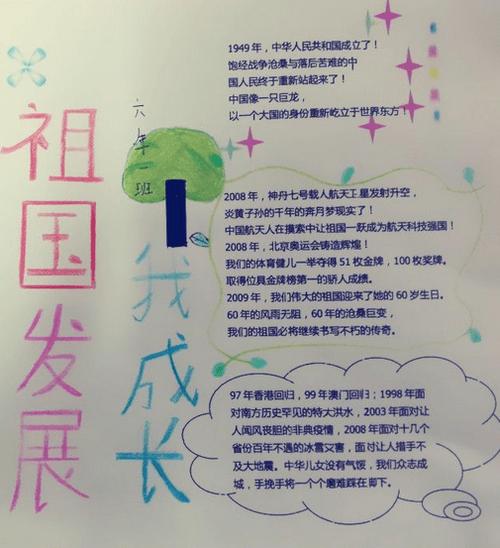 祖国发展
我成长
六年一班
1949 年，中华人民共和国成立了！
饱经战争沧桑与落后苦难的中
国人民终于重新站起来了！
中国像一只巨龙，
以一个大国的身份重新屹立于世界东方！
2008 年，神丹七号载人航天工星发射升空，
炎黄子孙的千年的奔月梦现实了！
中国航天人在摸索中让祖国一跃成为航天科技强国！
2008 年，北京奥运会铸造辉煌！
我们的体育健儿一举夺得 51 枚金牌，100 枚奖牌。
取得位具金牌榜第一的骄人成绩。
2009 年，我们伟大的祖国迎来了她的 60 岁生日。
60 年的风雨无阻，60 年的沧桑巨变，
我们的祖国必将继续书写不朽的传奇。
97 年香港回归，99 年澳门回归；1998 年面
对南方历史罕见的特大洪水，2003 年面对让
人闻风丧胆的非典疫情，2008 年面对十几个
省份百年不遇的冰雪又害，面对让人措手不
及大地震。中华儿女没有气馁，我们众志成
城，手挽手将一个个磨难踩在脚下。